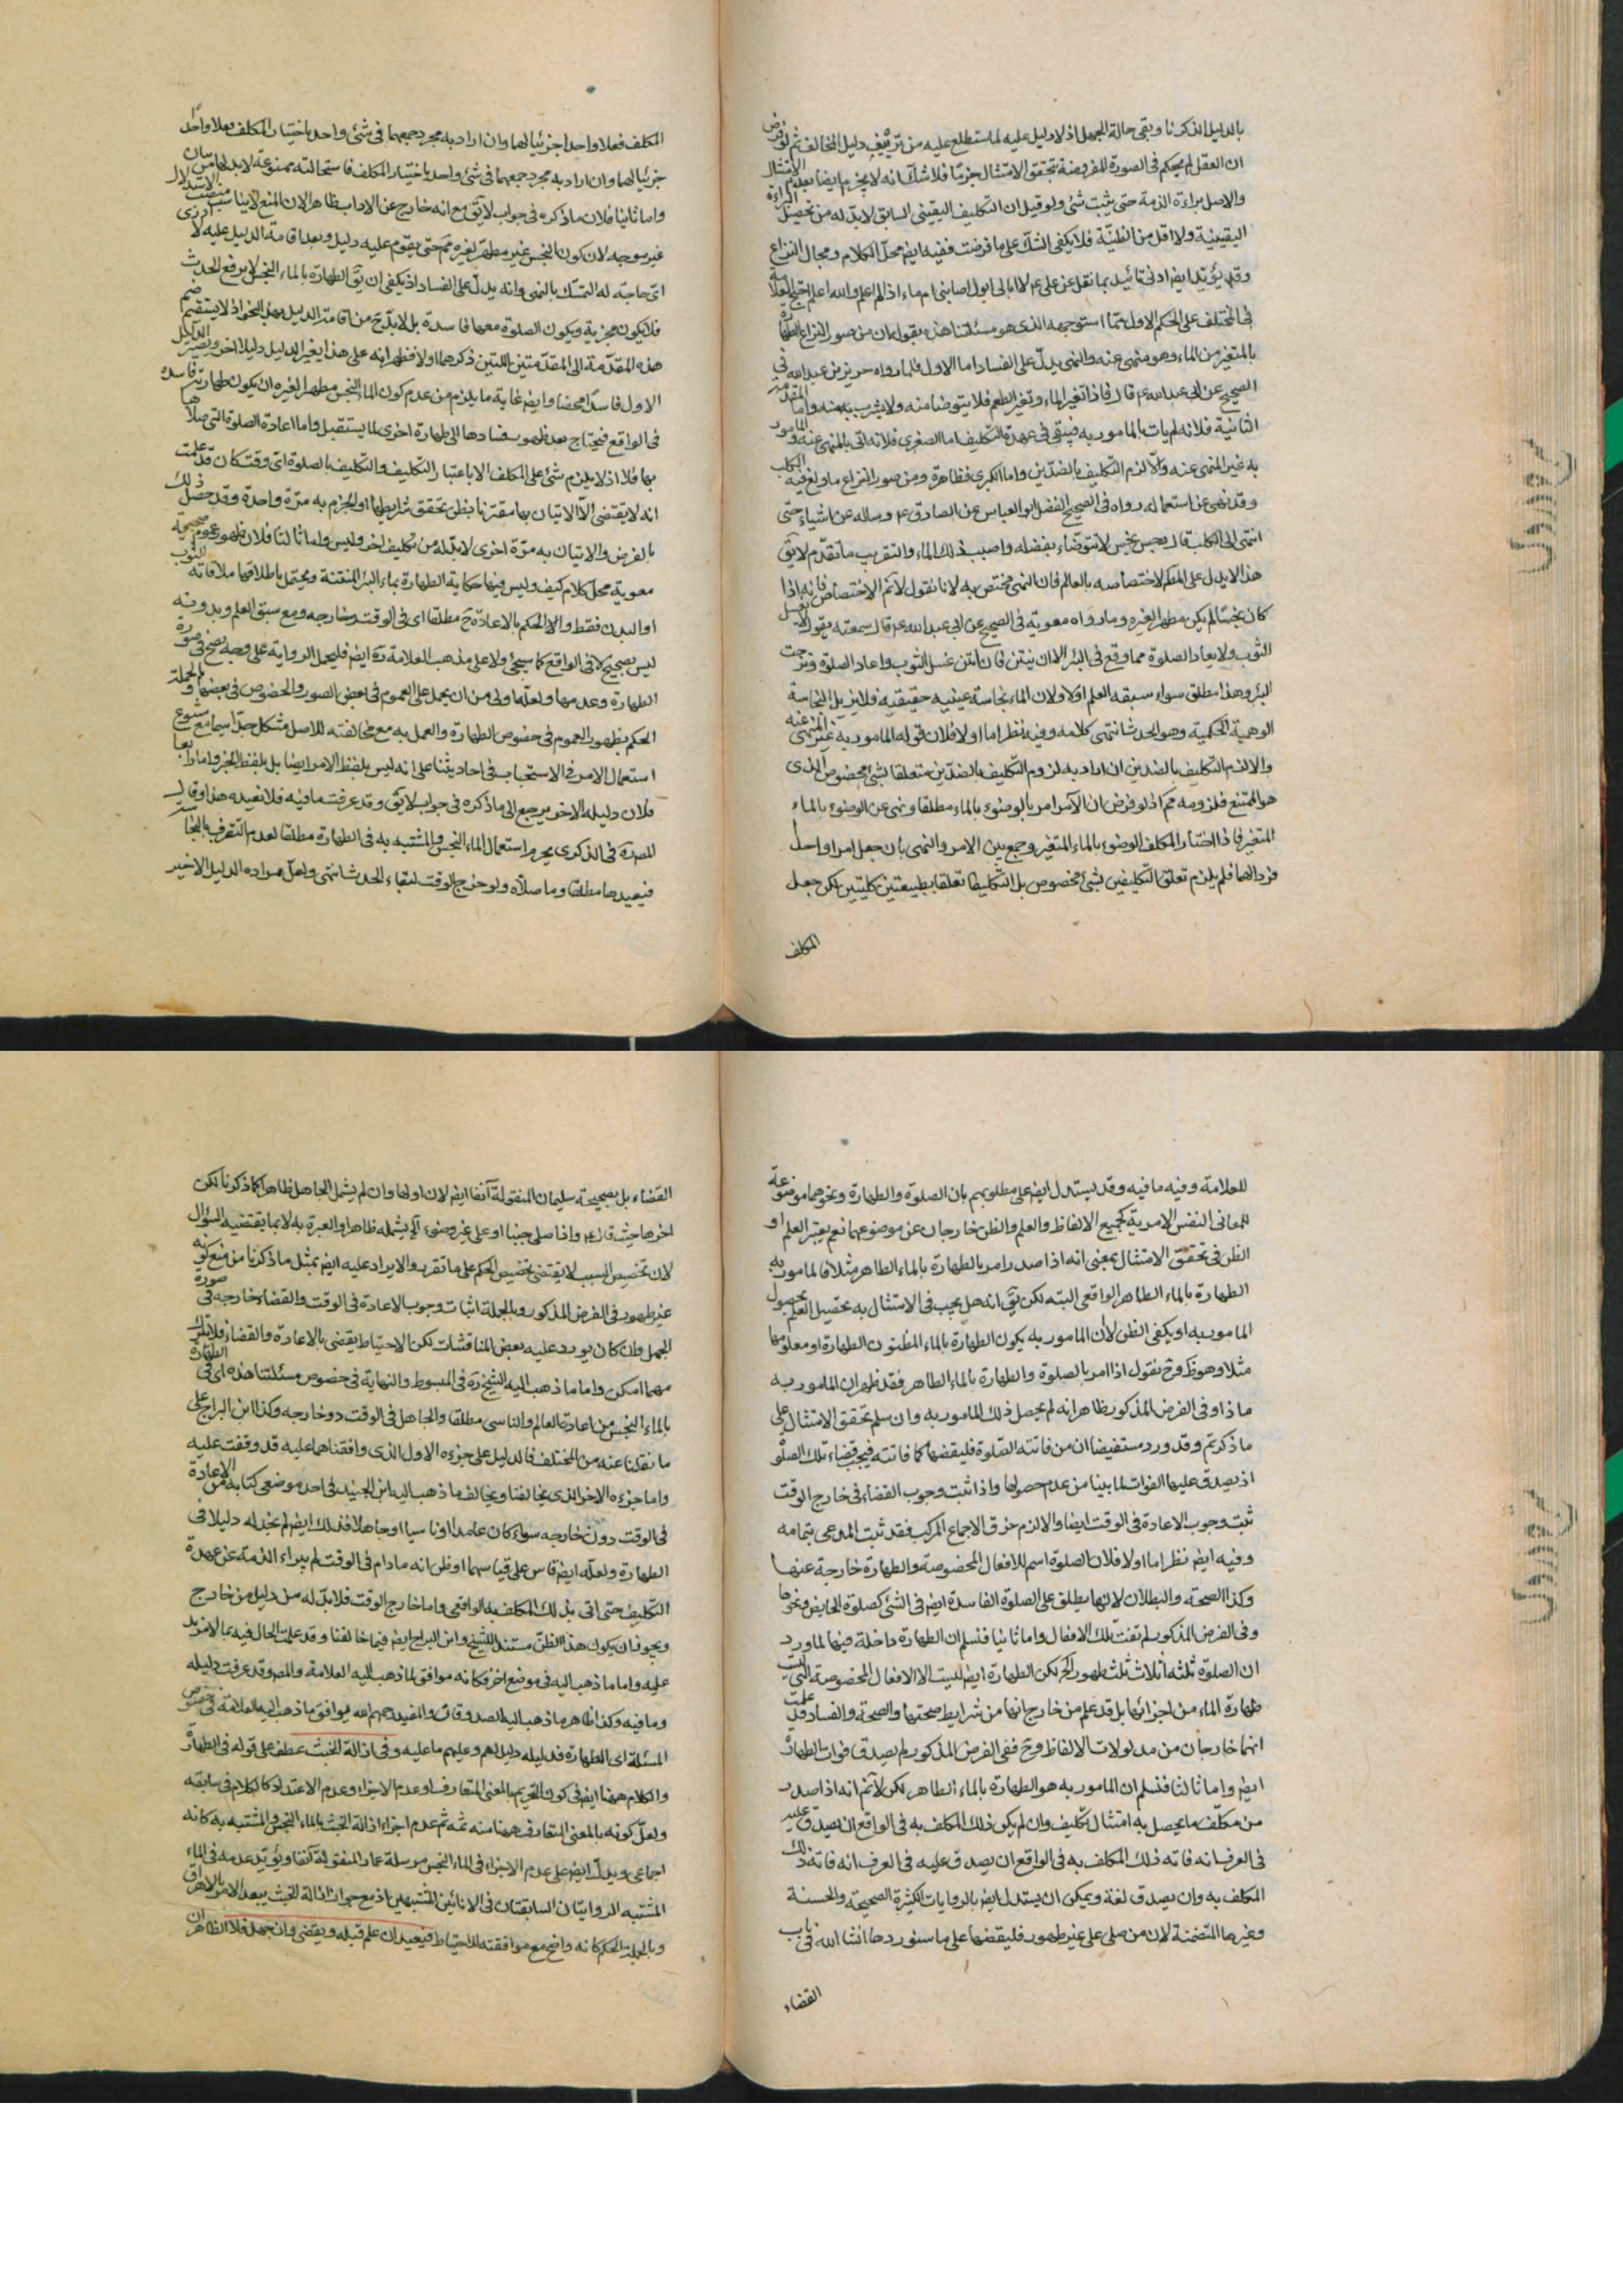 بالدليل الذى ذكرنا وبقى حالة الجهل اذ لا دليل عليه لما ستطلع عليه من تزييف دليل المخالف ثم لو فرض
ان العقل لم يحكم فى الصورة المفروضة بتحقق الامتثال جزما فلا شك انه لا يجزم ايضا بعدم الامتثال
والاصل براءة الذمة حتى يثبت شئ ولو قيل ان التكليف اليقينى السابق لابد له من تحصيل البراءة
اليقينية ولا اقل من الظنية فلا يكفى الشك على ما فرضت ففيه ايضا محل الكلام ومجال النزاع
وقد يؤيد ايضا ادنى تائيد بما نقل عن على ع لا ابالى ابول اصابنى ام ماء اذا لم اعلم والله اعلم احتج العلامة
فى المختلف على الحكم الاول بما استوجهه الذى هو مسئلتنا هذه بقوله ان من صور النزاع الطهارة
بالمتغير من الماء وهو منهى عنه والنهى يدل على الفساد اما الاول فلما رواه حريز بن عبد الله فى
الصحيح عن ابى عبد الله ع قال فاذا تغير الماء وتغير الطعم فلا يتوضا منه ولا يشرب منه واما المقدمة
الثانية فلانه لم يات بالمامور به فيبقى فى عهدة التكليف اما الصغرى فلانه اتى بالمنهى عنه والمامور
به غير المنهى عنه والا لزم التكليف بالضدين واما الكبرى فظاهرة ومن صور النزاع ما ولغ فيه الكلب
وقد نهى عن استعماله رواه فى الصحيح الفضل ابو العباس عن الصادق ع وساله عن اشياء حتى
انتهى الى الكلب قال رجس نجس لا تتوضاء بفضله واصبب ذلك الماء والتقريب ما تقدم لا يق
هذا لا يدل على المط لاختصاصه بالعالم فان النهى مختص به لانا نقول لا نم الاختصاص فانه اذا
كان نجسا لم يكن مطهرا لغيره وما رواه معوية فى الصحيح عن ابى عبد الله ع قال سمعته يقول لا يغسل
الثوب ولا يعاد الصلوة مما وقع فى البئر الا ان ينتن فان انتن غسل الثوب واعاد الصلوة ونزحت
البئر وهذا مطلق سواء سبقه العلم او لا ولان الماء نجاسة عينية حقيقية فلا يزيل النجاسة
الوهمية الحكمية وهو الحدث انتهى كلامه وفيه نظر اما اولا فلان قوله المامور به غير المنهى عنه
والا لزم التكليف بالضدين ان اراد به لزوم التكليف بالضدين متعلقا بشئ مخصوص الذى
هو الممتنع فلزومه مم اذ لو فرض ان الآمر امر بالوضوء بالماء مطلقا ونهى عن الوضوء بالماء
المتغير فاذا اختار المكلف الوضوء بالماء المتغير وجمع بين الامر والنهى بان جعل امرا واحدا
فردا لهما فلم يلزم تعلق التكليفين بشئ مخصوص بل التكليفا تعلقا بطبيعتين كليتين لكن جعل
المكلف
المكلف فعلا واحدا جزئيا لهما وان اراد به مجرد جمعهما فى شئ واحد باختيار المكلف فعلا واحدا
جزئيا لهما وان اراد به مجرد جمعهما فى شئ واحد باختيار المكلف فاستحالته ممنوعة لا بد لها من بيان
واما ثانيا فلان ما ذكره فى جواب لا يق مع انه خارج عن الاداب ظاهرا لان المنع لا يناسب منصب الاستدلال
غير موجه لان كون النجس غير مطهر لغيره مم حتى يقوم عليه دليل وبعد اقامة الدليل عليه لا ادرى
اى حاجة له التمسك بالنهى وانه يدل على الفساد اذ يكفى ان يق الطهارة بالماء النجس لا يرفع الحدث
فلا يكون مجزية ويكون الصلوة معها فاسدة بل لابد ح من اقامة الدليل بهذا النحو اذ لا يستقيم ضم
هذه المقدمة الى المقدمتين اللتين ذكرهما ولا فظهر انه على هذا يغير الدليل دليلا اخر ويصير الدليل
الاول فاسدا محضا وايضا غاية ما يلزم من عدم كون الماء النجس مطهرا لغيره ان يكون طهارته فاسدة
فى الواقع فيحتاج بعد ظهور فسادها الى طهارة اخرى لما يستقبل واما اعادة الصلوة التى صلاها
بها فلا اذ لا يلزم شئ على المكلف الا باعتبار التكليف والتكليف بالصلوة اى وقت كان قد علمت
انه لا يقتضى الا الاتيان بها مقترنا بظن تحقق شرايطها او الجزم به مرة واحدة وقد حصل ذلك
بالفرض والاتيان به مرة اخرى لابد له من تكليف اخر وليس واما ثالثا فلان ظهور عموم صحيحة
معوية محل كلام كيف وليس فيها حكاية الطهارة بماء البئر المنتنة ويحتمل باطلاقها ملاقاته للثوب
او البدن فقط والا لا لحكم بالاعادة ح مطلقا اى فى الوقت وخارجه ومع سبق العلم وبدونه
ليس بصحيح لا فى الواقع كما سيجئ ولا على مذهب العلامة ره ايضا فليحمل الرواية على وجه يصح فى صورة
الطهارة وعدمها ولعله اولى من ان يحمل على العموم فى بعض الصور والخصوص فى بعضها وبالجملة
الحكم بظهور العموم فى خصوص الطهارة والعمل به مع مخالفته للاصل مشكل جدا سيما مع شيوع
استعمال الامر فى الاستحباب فى احاديثنا على انه ليس بلفظ الامر ايضا بل بلفظ الخبر واما رابعا
فلان دليله الاخر يرجع الى ما ذكره فى جواب لا يق وقد عرفت ما فيه فلا نعيده هذا وقال
المصره فى الذكرى يحرم استعمال الماء النجس والمشتبه به فى الطهارة مطلقا لعدم التقرب بالنجاسة
فيعيدها مطلقا وما صلاه ولو خرج الوقت لبقاء الحدث انتهى ولعل مراده الدليل الاخير
للعلامة وفيه ما فيه وقد يستدل ايضا على مطلوبهم بان الصلوة والطهارة ونحوهما موضوعة
للمعانى النفس الامرية كجميع الالفاظ والعلم والظن خارجان عن موضوعها نعم يعتبر العلم او
الظن فى تحقق الامتثال بمعنى انه اذا صدر امر بالطهارة بالماء الطاهر مثلا فالمامور به
الطهارة بالماء الطاهر الواقعى البتة لكن بقى انه هل يجب فى الامتثال به تحصيل العلم بحصول
المامور به او يكفى الظن لا ان المامور به يكون الطهارة بالماء المظنون الطهارة او معلومها
مثلا وهو ظ وح نقول اذا امر بالصلوة والطهارة بالماء الطاهر فقد ظهر ان المامور به
ماذا وفى الفرض المذكور ظاهر انه لم يحصل ذلك المامور به وان سلم تحقق الامتثال على
ما ذكرتم وقد ورد مستفيضا ان من فاتته الصلوة فليقضها كما فاتته فيجب قضاء تلك الصلوة
اذ يصدق عليها الفوات لما بينا من عدم حصولها واذا ثبت وجوب القضاء فى خارج الوقت
ثبت وجوب الاعادة فى الوقت ايضا والا لزم خرق الاجماع المركب فقد ثبت المدعى بتمامه
وفيه ايضا نظر اما اولا فلان الصلوة اسم للافعال المخصوصة والطهارة خارجة عنها
وكذا الصحة والبطلان لانها يطلق على الصلوة الفاسدة ايضا فى الشئ كصلوة الحايض ونحوها
وفى الفرض المذكور لم تفت تلك الافعال واما ثانيا فنسلم ان الطهارة داخلة فيها لما ورد
ان الصلوة ثلثة اثلاث ثلث طهور الخ لكن الطهارة ايضا ليست الا الافعال المخصوصة التى ليست
طهارة الماء من اجزائها بل قد علم من خارج انها من شرايط صحتها والصحة والفساد قد علمت
انهما خارجان من مدلولات الالفاظ وح ففى الفرض المذكور لم يصدق فوات الطهارة
ايضا واما ثالثا فنسلم ان المامور به هو الطهارة بالماء الطاهر لكن لا نم انه اذا صدر
من مكلف ما يحصل به امتثال تكليف وان لم يكن ذلك المكلف به فى الواقع ان يصدق عليه
فى العرف انه فاته ذلك المكلف به فى الواقع ان يصدق عليه فى العرف انه فاته ذلك
المكلف به وان يصدق لغة ويمكن ان يستدل ايضا بالروايات الكثيرة الصحيحة والحسنة
وغيرها المتضمنة لان من صلى على غير طهور فليقضها على ما سنوردها انشا الله فى باب
القضاء
القضاء بل بصحيحة سليمان المنقولة آنفا ايضا لان اولها وان لم يشمل الجاهل ظاهرا كما ذكرنا لكن
اخرها حيث قال ع واذا صلى جنبا او على غير وضوء الخ يشمله ظاهرا والعبرة به لا بما يقتضيه السؤال
لان تخصيص السبب لا يقتضى تخصيص الحكم على ما تقرر والايراد عليه ايضا بمثل ما ذكرنا من منع كونه
غير طهور فى الفرض المذكور وبالجملة اثبات وجوب الاعادة فى الوقت والقضاء خارجه فى صورة
الجهل وان كان يورد عليه بعض المناقشات لكن الاحتياط يقضى بالاعادة والقضاء فلا يترك
مهما امكن واما ما ذهب اليه الشيخ ره فى المبسوط والنهاية فى خصوص مسئلتنا هذه اى فى الطهارة
بالماء النجس من اعادة العالم والناسى مطلقا والجاهل فى الوقت دو خارجه وكذا ابن البراج على
ما نقلنا عنه من المختلف فالدليل على جزءه الاول الذى وافقناهما عليه قد وقفت عليه
واما جزءه الاخر الذى يخالفنا ويخالف ما ذهب اليه ابن الجنيد فى احد موضعى كتابه من الاعادة
فى الوقت دون خارجه سواء كان عامدا او ناسيا او جاهلا فذلك ايضا لم نجد له دليلا فى
الطهارة ولعله ايضا قاس على قياسهما او ظن انه مادام فى الوقت لم يبراء الذمة عن عهدة
التكليف حتى اتى بذلك المكلف به الواقعى واما خارج الوقت فلا بد له من دليل من خارج
ويجوز ان يكون هذا الظن مستند الشيخ وابن البراج ايضا فيما خالفنا وقد علمت الحال فيه بما لا مزيد
عليه واما ما ذهب اليه فى موضع اخر فكانه موافق لما ذهب اليه العلامة والمص وقد عرفت دليله
وما فيه وكذا ظاهر ما ذهب اليه الصدوقان والمفيد رحمهم الله يوافق ما ذهب اليه العلامة فى خصوص
المسئلة اى الطهارة فدليله دليلهم وعليهم ما عليه وفى ازالة الخبث عطف على قوله فى الطهارة
والكلام ههنا ايضا فى كون التحريم بالمعنى المتعارف او عدم الاجزاء وعدم الاعتداد كالكلام فى سابقه
ولعل كونه بالمعنى المتعارف ههنا منه ثمه ثم عدم اجزاء ازالة الخبث بالماء النجس والمشتبه به كانه
اجماعى ويدل ايضا على عدم الاجزاء فى الماء النجس مرسلة عمار المنقولة آنفا ويؤيد عدمه فى الماء
المشتبه الروايتان السابقتان فى الانائين المشتبهين اذ مع جواز ازالة الخبث يبعد الامر بالاهراق
وبالجملة الحكم كانه واضح مع موافقته للاحتياط فيعيد ان علم قبله ويقضى وان جهل فلا الظاهر ان